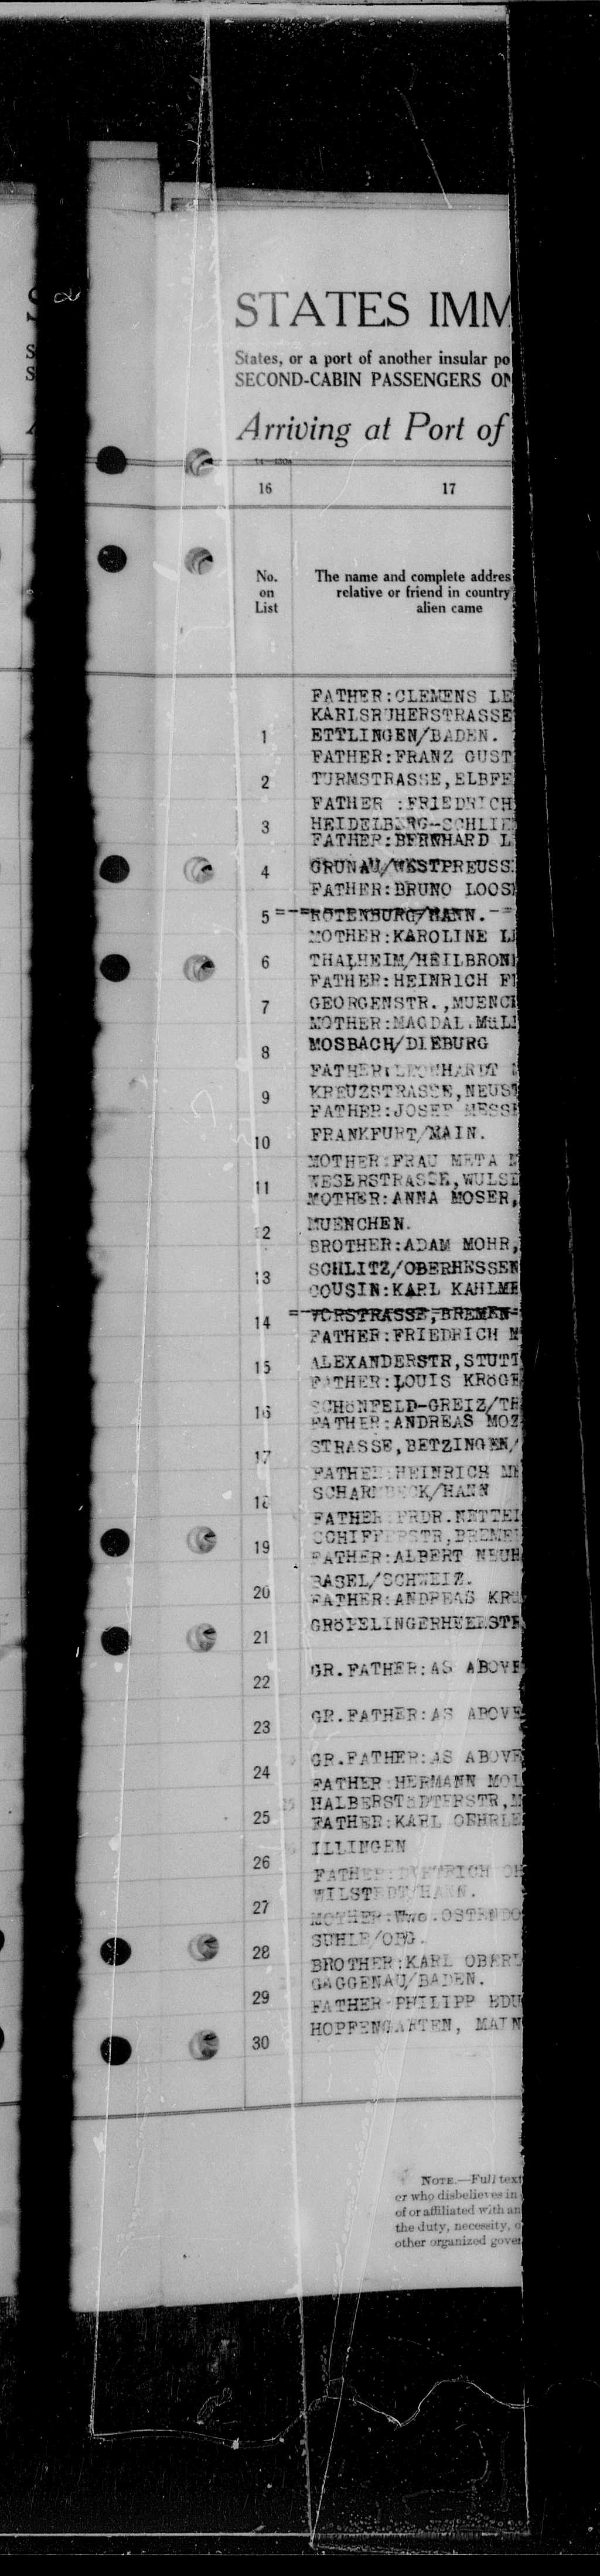 STATES IMM
States, or a port of another insular po
SECOND-CABIN PASSENGERS ON
Arriving at Port of
16 17
No. on List
The name and complete addres
relative or friend in country
alien came
FATHER:CLEMENS LE
KARLSRUHERSTRASSE
1 ETTLINGEN/BADEN.
FATHER:FRANZ GUST
2 TURMSTRASSE,ELBFE
FATHER :FRIEDRICH
3 HEIDELBERG-SCHLIE
FATHER:BERNHARD L
4 GRUNAU/WESTPREUSS
FATHER:BRUNO LOOS
5 ROTENBURG/HANN.
MOTHER:KAROLINE L
6 THALHEIM/HEILBRON
FATHER:HEINRICH F
7 GEORGENSTR.,MUENC
MOTHER:MAGDAL.MüL
8 MOSBACH/DIEBURG
FATHER:LEONHARDT
9 KREUZSTRASSE,NEUS
FATHER:JOSEF MESS
10 FRANKFURT/MAIN.
MOTHER:FRAU META
11 WESERSTRASSE,WULS
MOTHER:ANNA MOSER,
12 MUENCHEN.
BROTHER:ADAM MOHR,
13 SCHLITZ/OBERHESSEN
COUSIN:KARL KAHLME
14 TORSTRASSE,BREMEN
FATHER:FRIEDRICH M
15 ALEXANDERSTR,STUTT
FATHER:LOUIS KRöGE
16 SCHöNFELD-GREIZ/TH
FATHER:ANDREAS MOZ
17 STRASSE,BETZINGEN/
FATHER:HEINRICH ME
18 SCHARMBECK/HANN
FATHER FRDR.NETTE
19 SCHIFFERSTR,BREME
FATHER:ALBERT NEUH
20 BASEL/SCHWEIZ.
FATHER:ANDREAS KR
21 GRöPELINGERHEERSTR
22 GR.FATHER:AS ABOVE
23 GR.FATHER:AS ABOVE
24 GR.FATHER:AS ABOVE
FATHER HERMANN MOL
25 HALBERSTäDTERSTR,M
FATHER:KARL OEHRLE
26 ILLINGEN
FATHER:DIETRICH OH
27 WILSTEDT/HANN.
MOTHER:Wwe.OSTENDO
28 SUHLE/OBG.
BROTHER:KARL OBER
29 GAGGENAU/BADEN.
FATHER PHILIPP EDU
30 HOPFENGARTEN, MAIN
NOTE.—Full text
er who disbelieves in
of or affiliated with an
the duty, necessity, o
other organized gove